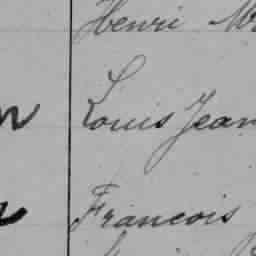 Henri
Louis Jean
Francois